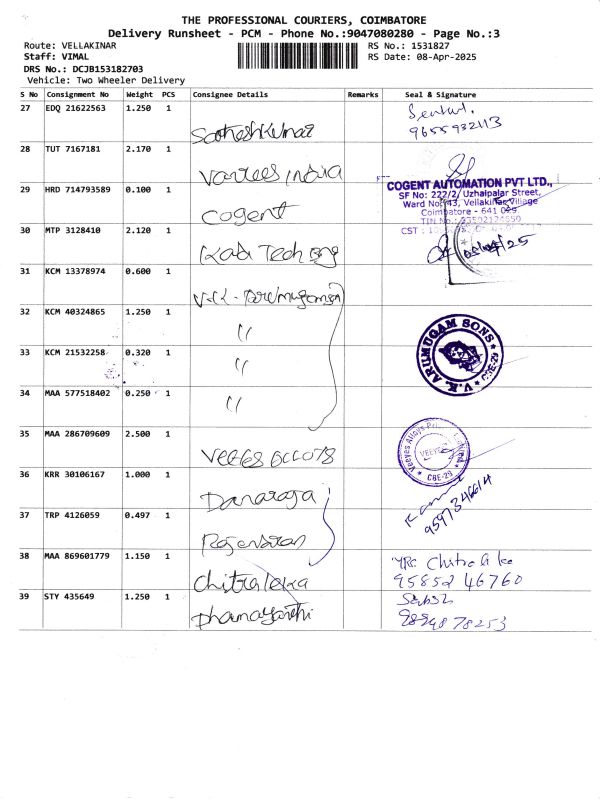 THE PROFESSIONAL COURIERS, COIMBATORE
Delivery Runsheet - PCM - Phone No.:9047080280 - Page No.:3
Route: VELLAKINAR RS No.: 1531827
Staff: VIMAL RS Date: 08-Apr-2025
DRS No.: DCJB153182703
Vehicle: Two Wheeler Delivery
S No Consignment No Weight PCS Consignee Details Remarks Seal & Signature
27 EDQ 21622563 1.250 1
Satheshkumar 9655932113
28 TUT 7167181 2.170 1
India
29 HRD 714793589 0.100 1
Cogent
COGENT AUTOMATION PVT LTD.,
SF No: 222/2, Uzhaipalar Street,
Ward No. 43, Vellakinar Village
Coimbatore - 641 029.
30 MTP 3128410 2.120 1
Tech
31 KCM 13378974 0.600 1
V.K.
32 KCM 40324865 1.250 1
"
V.K. ARUMUGAM SONS CBE-29
33 KCM 21532258 0.320 1
"
34 MAA 577518402 0.250 1
"
35 MAA 286709609 2.500 1
Veees
Veeyes Alloys Private Limited CBE-29
36 KRR 30106167 1.000 1
Danaraja
9597346614
37 TRP 4126059 0.497 1
38 MAA 869601779 1.150 1
Chitraleka
95852 46760
39 STY 435649 1.250 1
Dhamayanthi
9894878253